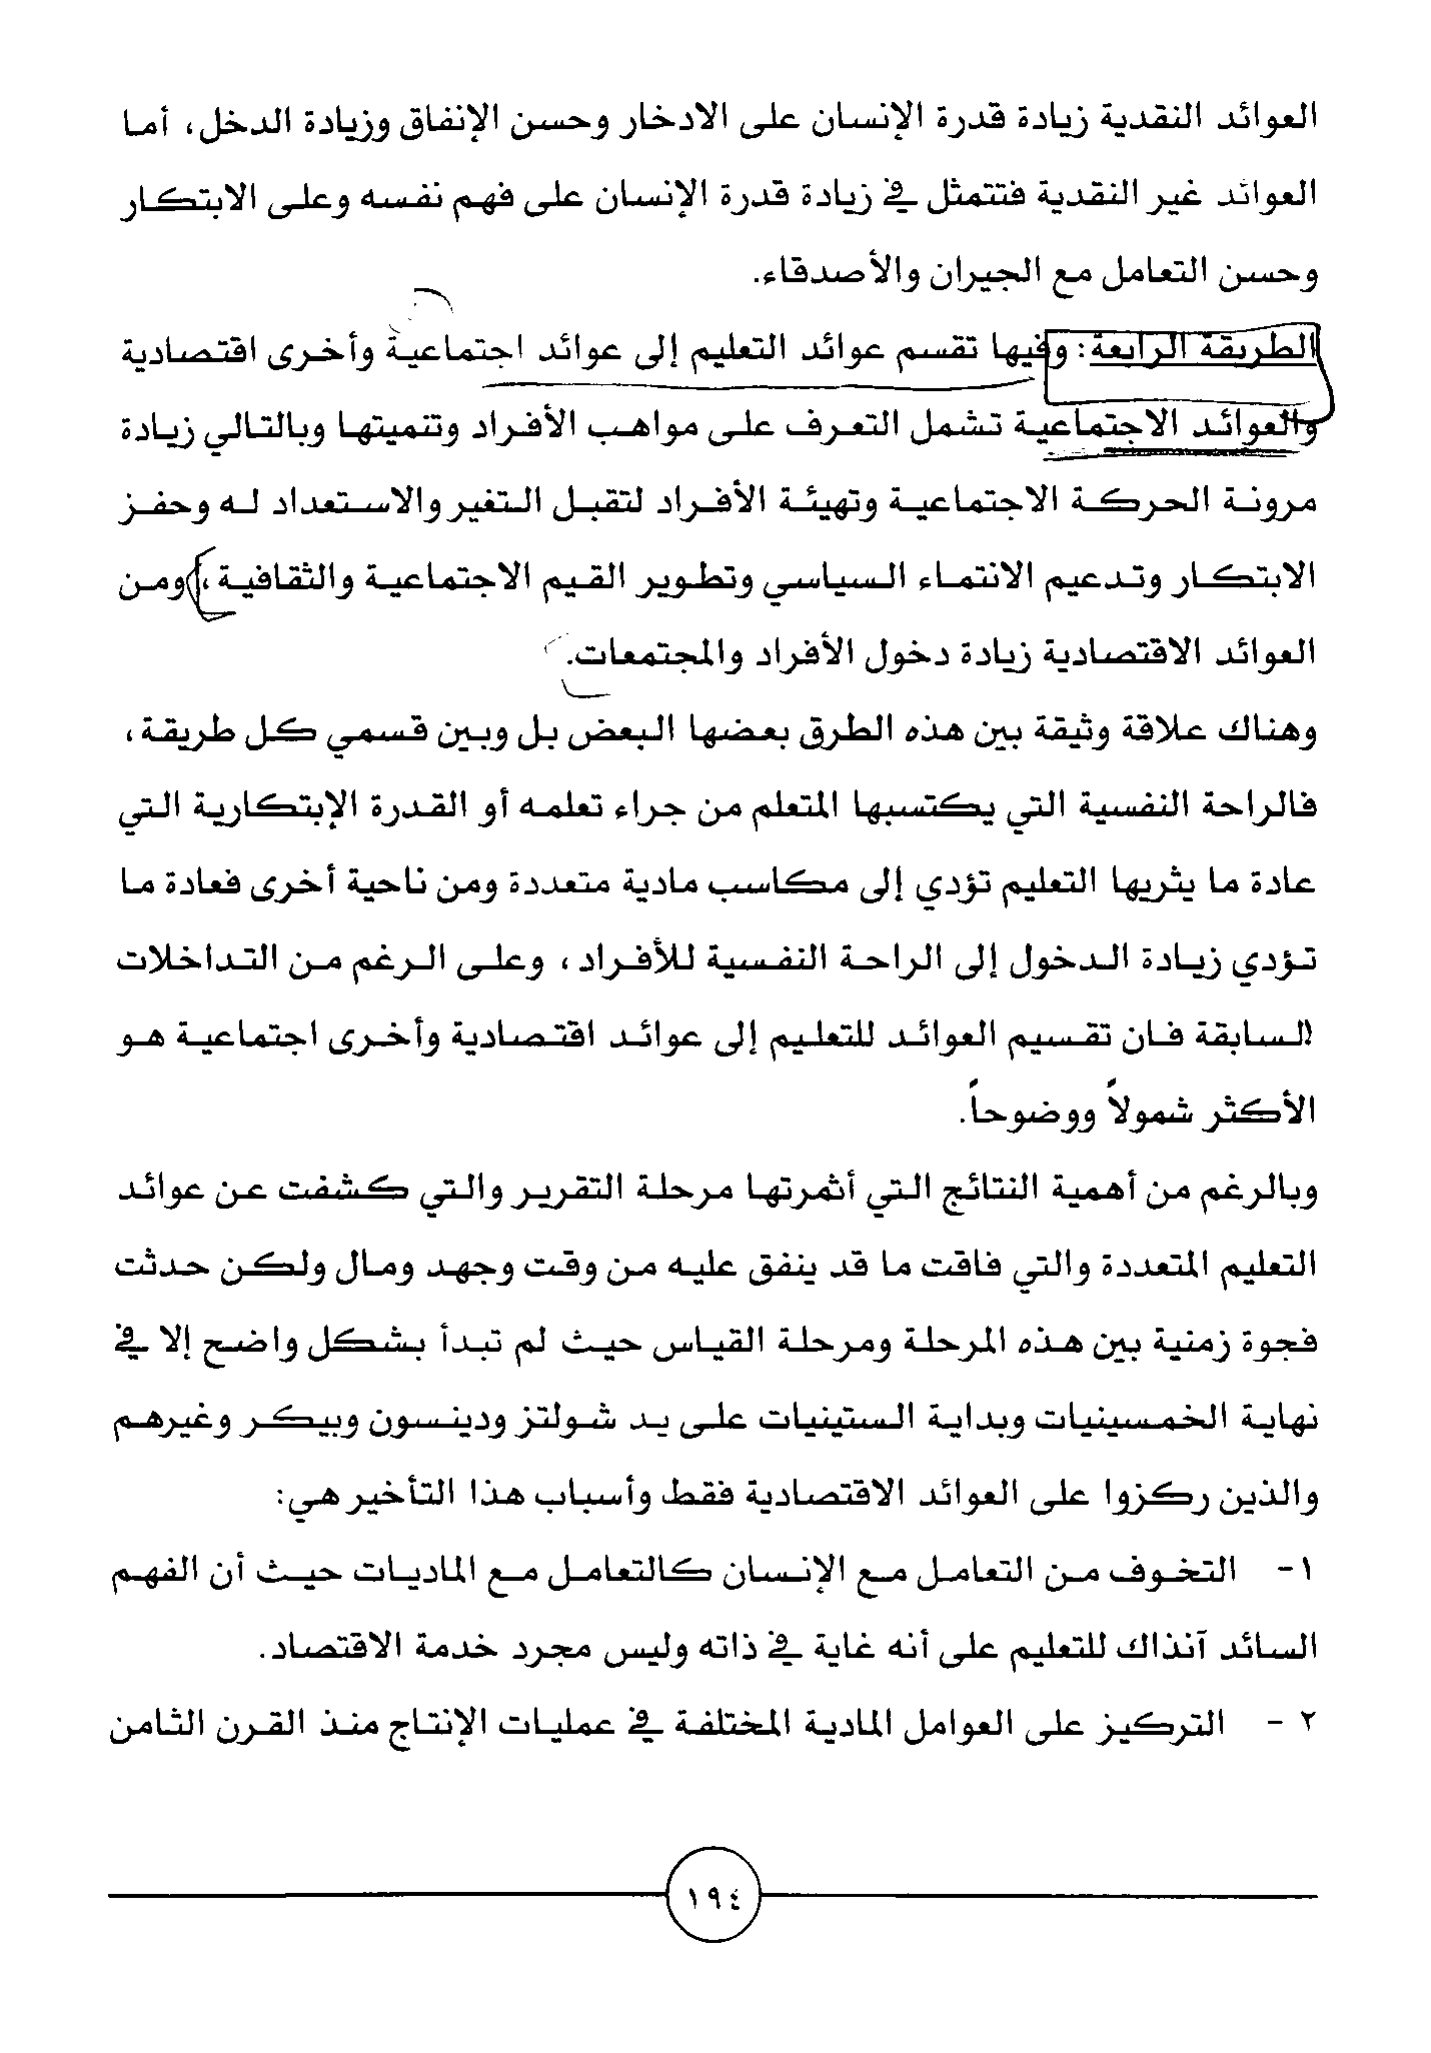 العوائد النقدية زيادة قدرة الإنسان على الادخار وحسن الإنفاق وزيادة الدخل، أما
العوائد غير النقدية فتتمثل في زيادة قدرة الإنسان على فهم نفسه وعلى الابتكار
وحسن التعامل مع الجيران والأصدقاء.
الطريقة الرابعة: وفيها تقسم عوائد التعليم إلى عوائد اجتماعية وأخرى اقتصادية
والعوائد الاجتماعية تشمل التعرف على مواهب الأفراد وتنميتها وبالتالي زيادة
مرونة الحركة الاجتماعية وتهيئة الأفراد لتقبل التغير والاستعداد له وحفز
الابتكار وتدعيم الانتماء السياسي وتطوير القيم الاجتماعية والثقافية، ومن
العوائد الاقتصادية زيادة دخول الأفراد والمجتمعات.
وهناك علاقة وثيقة بين هذه الطرق بعضها البعض بل وبين قسمي كل طريقة،
فالراحة النفسية التي يكتسبها المتعلم من جراء تعلمه أو القدرة الإبتكارية التي
عادة ما يثريها التعليم تؤدي إلى مكاسب مادية متعددة ومن ناحية أخرى فعادة ما
تؤدي زيادة الدخول إلى الراحة النفسية للأفراد، وعلى الرغم من التداخلات
السابقة فان تقسيم العوائد للتعليم إلى عوائد اقتصادية وأخرى اجتماعية هو
الأكثر شمولاً ووضوحاً.
وبالرغم من أهمية النتائج التي أثمرتها مرحلة التقرير والتي كشفت عن عوائد
التعليم المتعددة والتي فاقت ما قد ينفق عليه من وقت وجهد ومال ولكن حدثت
فجوة زمنية بين هذه المرحلة ومرحلة القياس حيث لم تبدأ بشكل واضح إلا في
نهاية الخمسينيات وبداية الستينيات على يد شولتز ودينسون وبيكر وغيرهم
والذين ركزوا على العوائد الاقتصادية فقط وأسباب هذا التأخير هي:
١- التخوف من التعامل مع الإنسان كالتعامل مع الماديات حيث أن الفهم
السائد آنذاك للتعليم على أنه غاية في ذاته وليس مجرد خدمة الاقتصاد.
٢ - التركيز على العوامل المادية المختلفة في عمليات الإنتاج منذ القرن الثامن
١٩٤